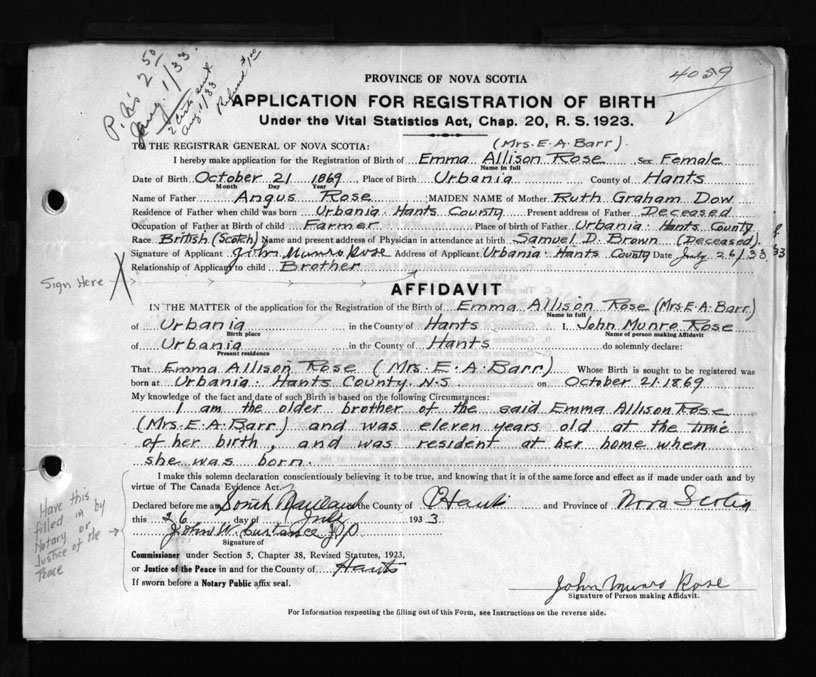 P.N's 2 50
Aug. 1/33.
2 Certs sent
Aug 1/33
Refund $1.00
4059
PROVINCE OF NOVA SCOTIA
APPLICATION FOR REGISTRATION OF BIRTH
Under the Vital Statistics Act, Chap. 20, R. S. 1923.
(Mrs. E. A. Barr).
TO THE REGISTRAR GENERAL OF NOVA SCOTIA:
I hereby make application for the Registration of Birth of Emma Allison Rose Sex Female
Name in full
Date of Birth October 21 1869 Place of Birth Urbania County of Hants
Month Day Year
Name of Father Angus Rose MAIDEN NAME of Mother Ruth Graham Dow
Residence of Father when child was born Urbania. Hants County Present address of Father Deceased
Occupation of Father at Birth of child Farmer Place of birth of Father Urbania. Hants County
Race British (Scotch) Name and present address of Physician in attendance at birth Samuel D. Brown (Deceased).
Signature of Applicant John Munro Rose Address of Applicant Urbania. Hants County Date July 26/33
Relationship of Applicant to child Brother
Sign Here X
AFFIDAVIT
IN THE MATTER of the application for the Registration of the Birth of Emma Allison Rose (Mrs. E. A. Barr)
Name in full
of Urbania in the County of Hants I, John Munro Rose
Birth place Name of person making Affidavit
of Urbania in the County of Hants do solemnly declare:
Present residence
That Emma Allison Rose (Mrs. E. A. Barr) Whose Birth is sought to be registered was
born at Urbania. Hants County. N.S. on October 21. 1869
My knowledge of the fact and date of such Birth is based on the following Circumstances:
I am the older brother of the said Emma Allison Rose
(Mrs. E. A. Barr) and was eleven years old at the time
of her birth, and was resident at her home when
she was born.
I make this solemn declaration conscientiously believing it to be true, and knowing that it is of the same force and effect as if made under oath and by
virtue of The Canada Evidence Act.
Declared before me at South Maitland the County of Hants and Province of Nova Scotia
this 26 day of July 1933
John W. Custance J.P.
Signature of
Have this
filled in by
Notary or
Justice of the
Peace
Commissioner under Section 5, Chapter 38, Revised Statutes, 1923,
or Justice of the Peace in and for the County of Hants
If sworn before a Notary Public affix seal.
John Munro Rose
Signature of Person making Affidavit.
For Information respecting the filling out of this Form, see Instructions on the reverse side.